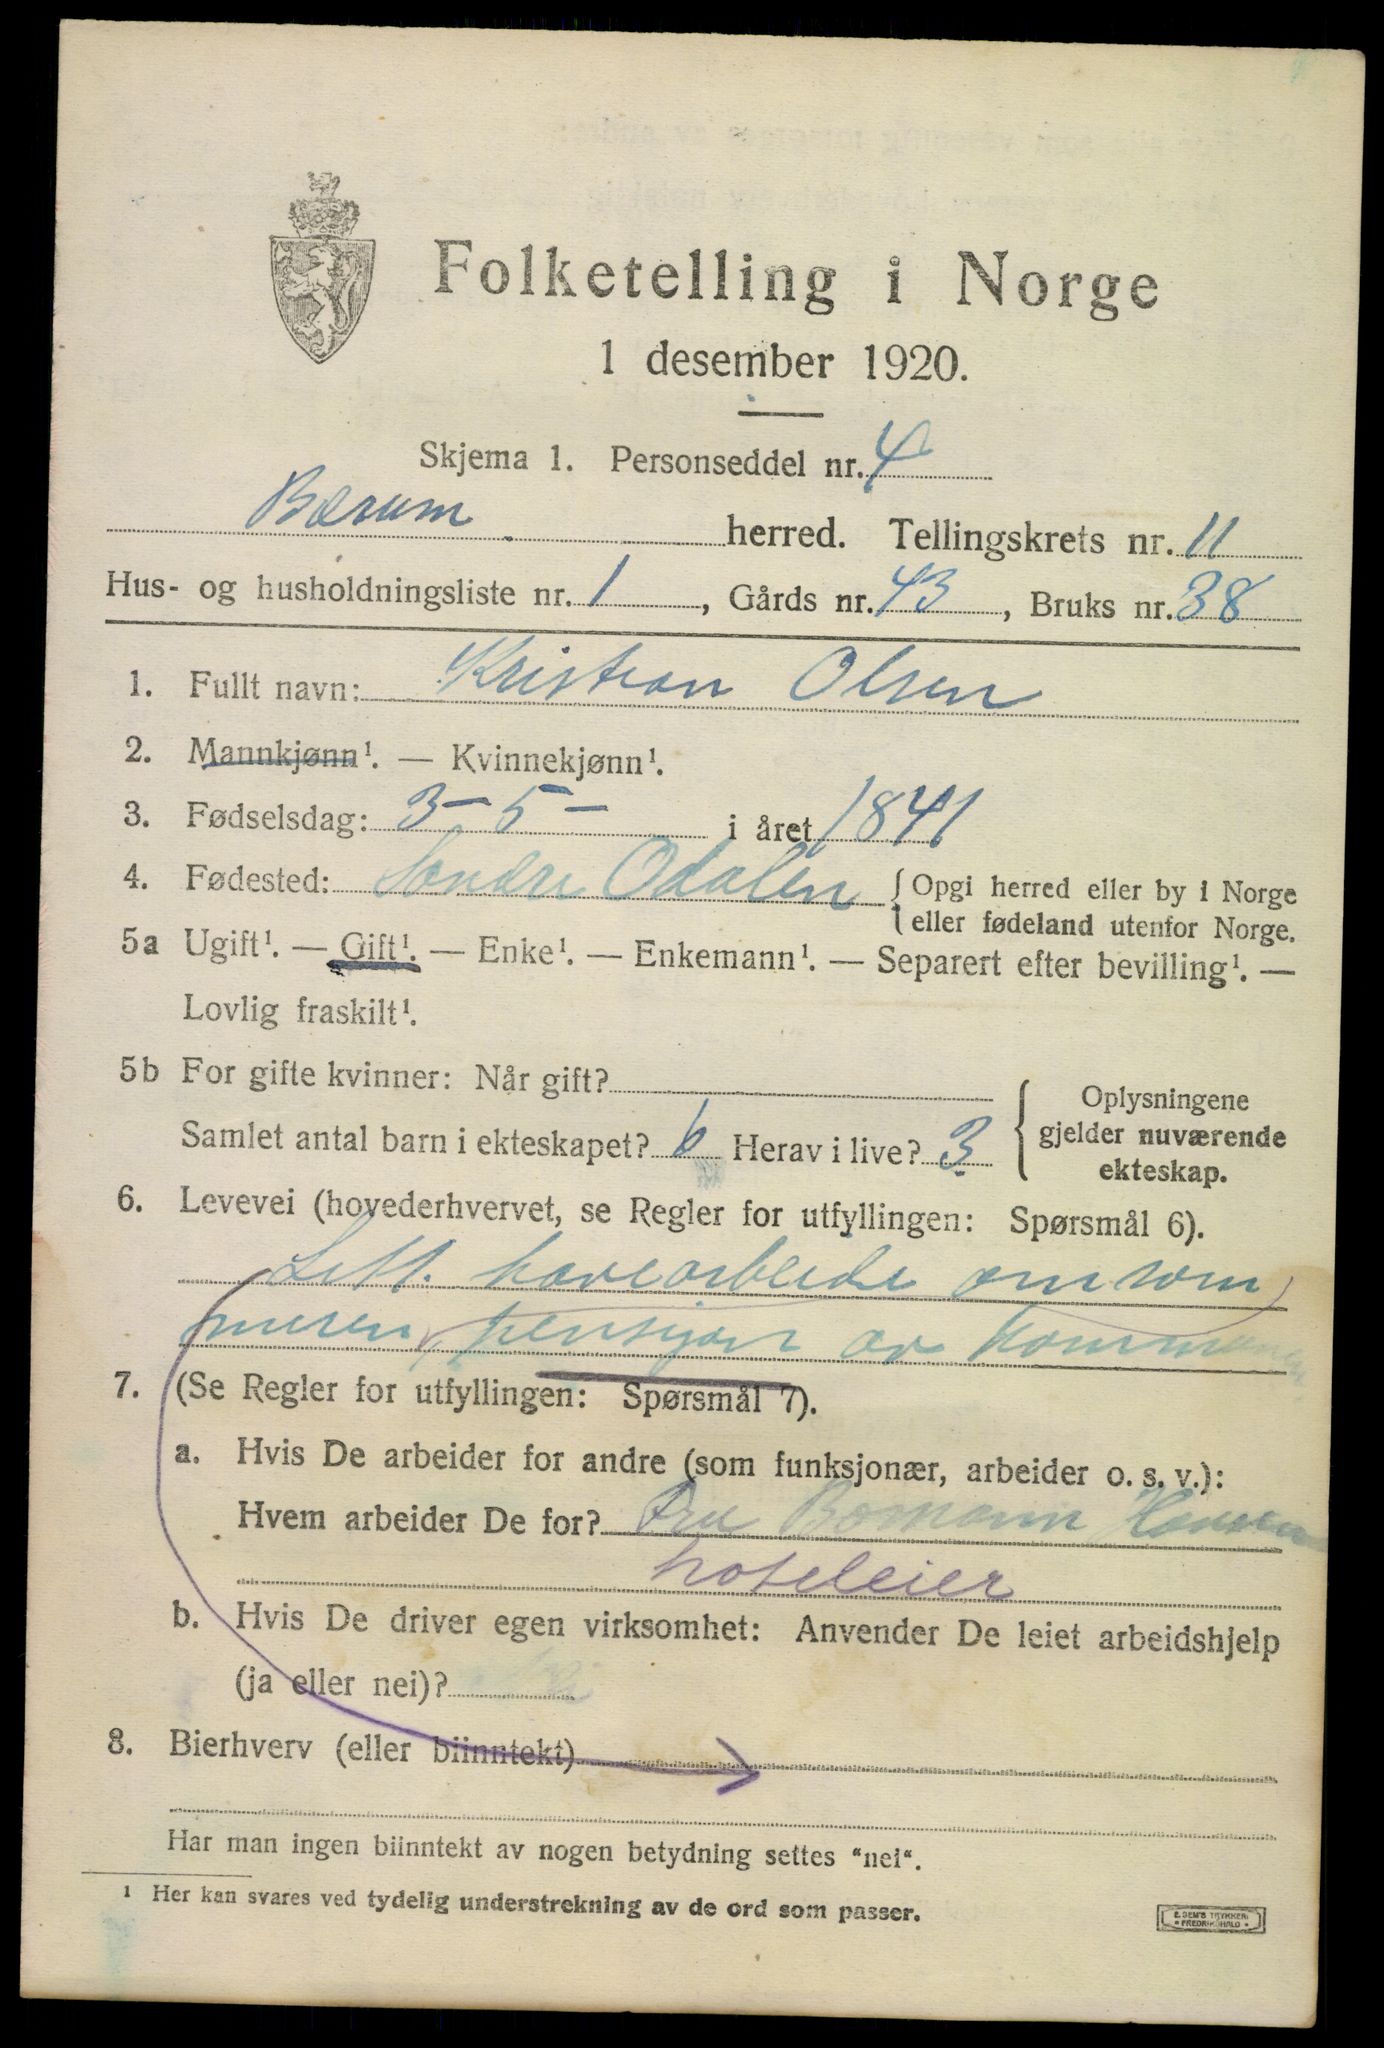 Folketelling i Norge
1 desember 1920.
Skjema 1. Personseddel nr. 4
Bærum herred. Tellingskrets nr. 11
Hus- og husholdningsliste nr. 1, Gårds nr. 43, Bruks nr. 38
1. Fullt navn: Kristian Olsen
2. Mannkjønn¹. — Kvinnekjønn¹.
3. Fødselsdag: 3 - 5 - i året 1841
4. Fødested: Søndre Odalen { Opgi herred eller by i Norge
eller fødeland utenfor Norge.
5a Ugift¹. — Gift¹. — Enke¹. — Enkemann¹. — Separert efter bevilling¹. —
Lovlig fraskilt¹.
5b For gifte kvinner: Når gift?
Samlet antal barn i ekteskapet? 6 Herav i live? 3
{ Oplysningene
gjelder nuværende
ekteskap.
6. Levevei (hovederhvervet, se Regler for utfyllingen: Spørsmål 6).
Lett havearbeide om som
meren, pensjon av kommunen
7. (Se Regler for utfyllingen: Spørsmål 7).
a. Hvis De arbeider for andre (som funksjonær, arbeider o. s. v.):
Hvem arbeider De for? Fru Bomann Hansen
hoteleier
b. Hvis De driver egen virksomhet: Anvender De leiet arbeidshjelp
(ja eller nei)?
8. Bierhverv (eller biinntekt)
Har man ingen biinntekt av nogen betydning settes "nei".
¹ Her kan svares ved tydelig understrekning av de ord som passer.
E. SEM'S TRYKKERI
• FREDRIKSHALD •